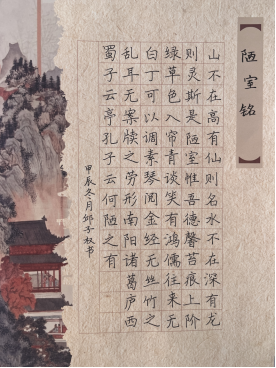 陋室铭
山不在高有仙则名水不在深有龙
则灵斯是陋室惟吾德馨苔痕上阶
绿草色入帘青谈笑有鸿儒往来无
白丁可以调素琴阅金经无丝竹之
乱耳无案牍之劳形南阳诸葛庐西
蜀子云亭孔子云何陋之有
甲辰冬月子权书